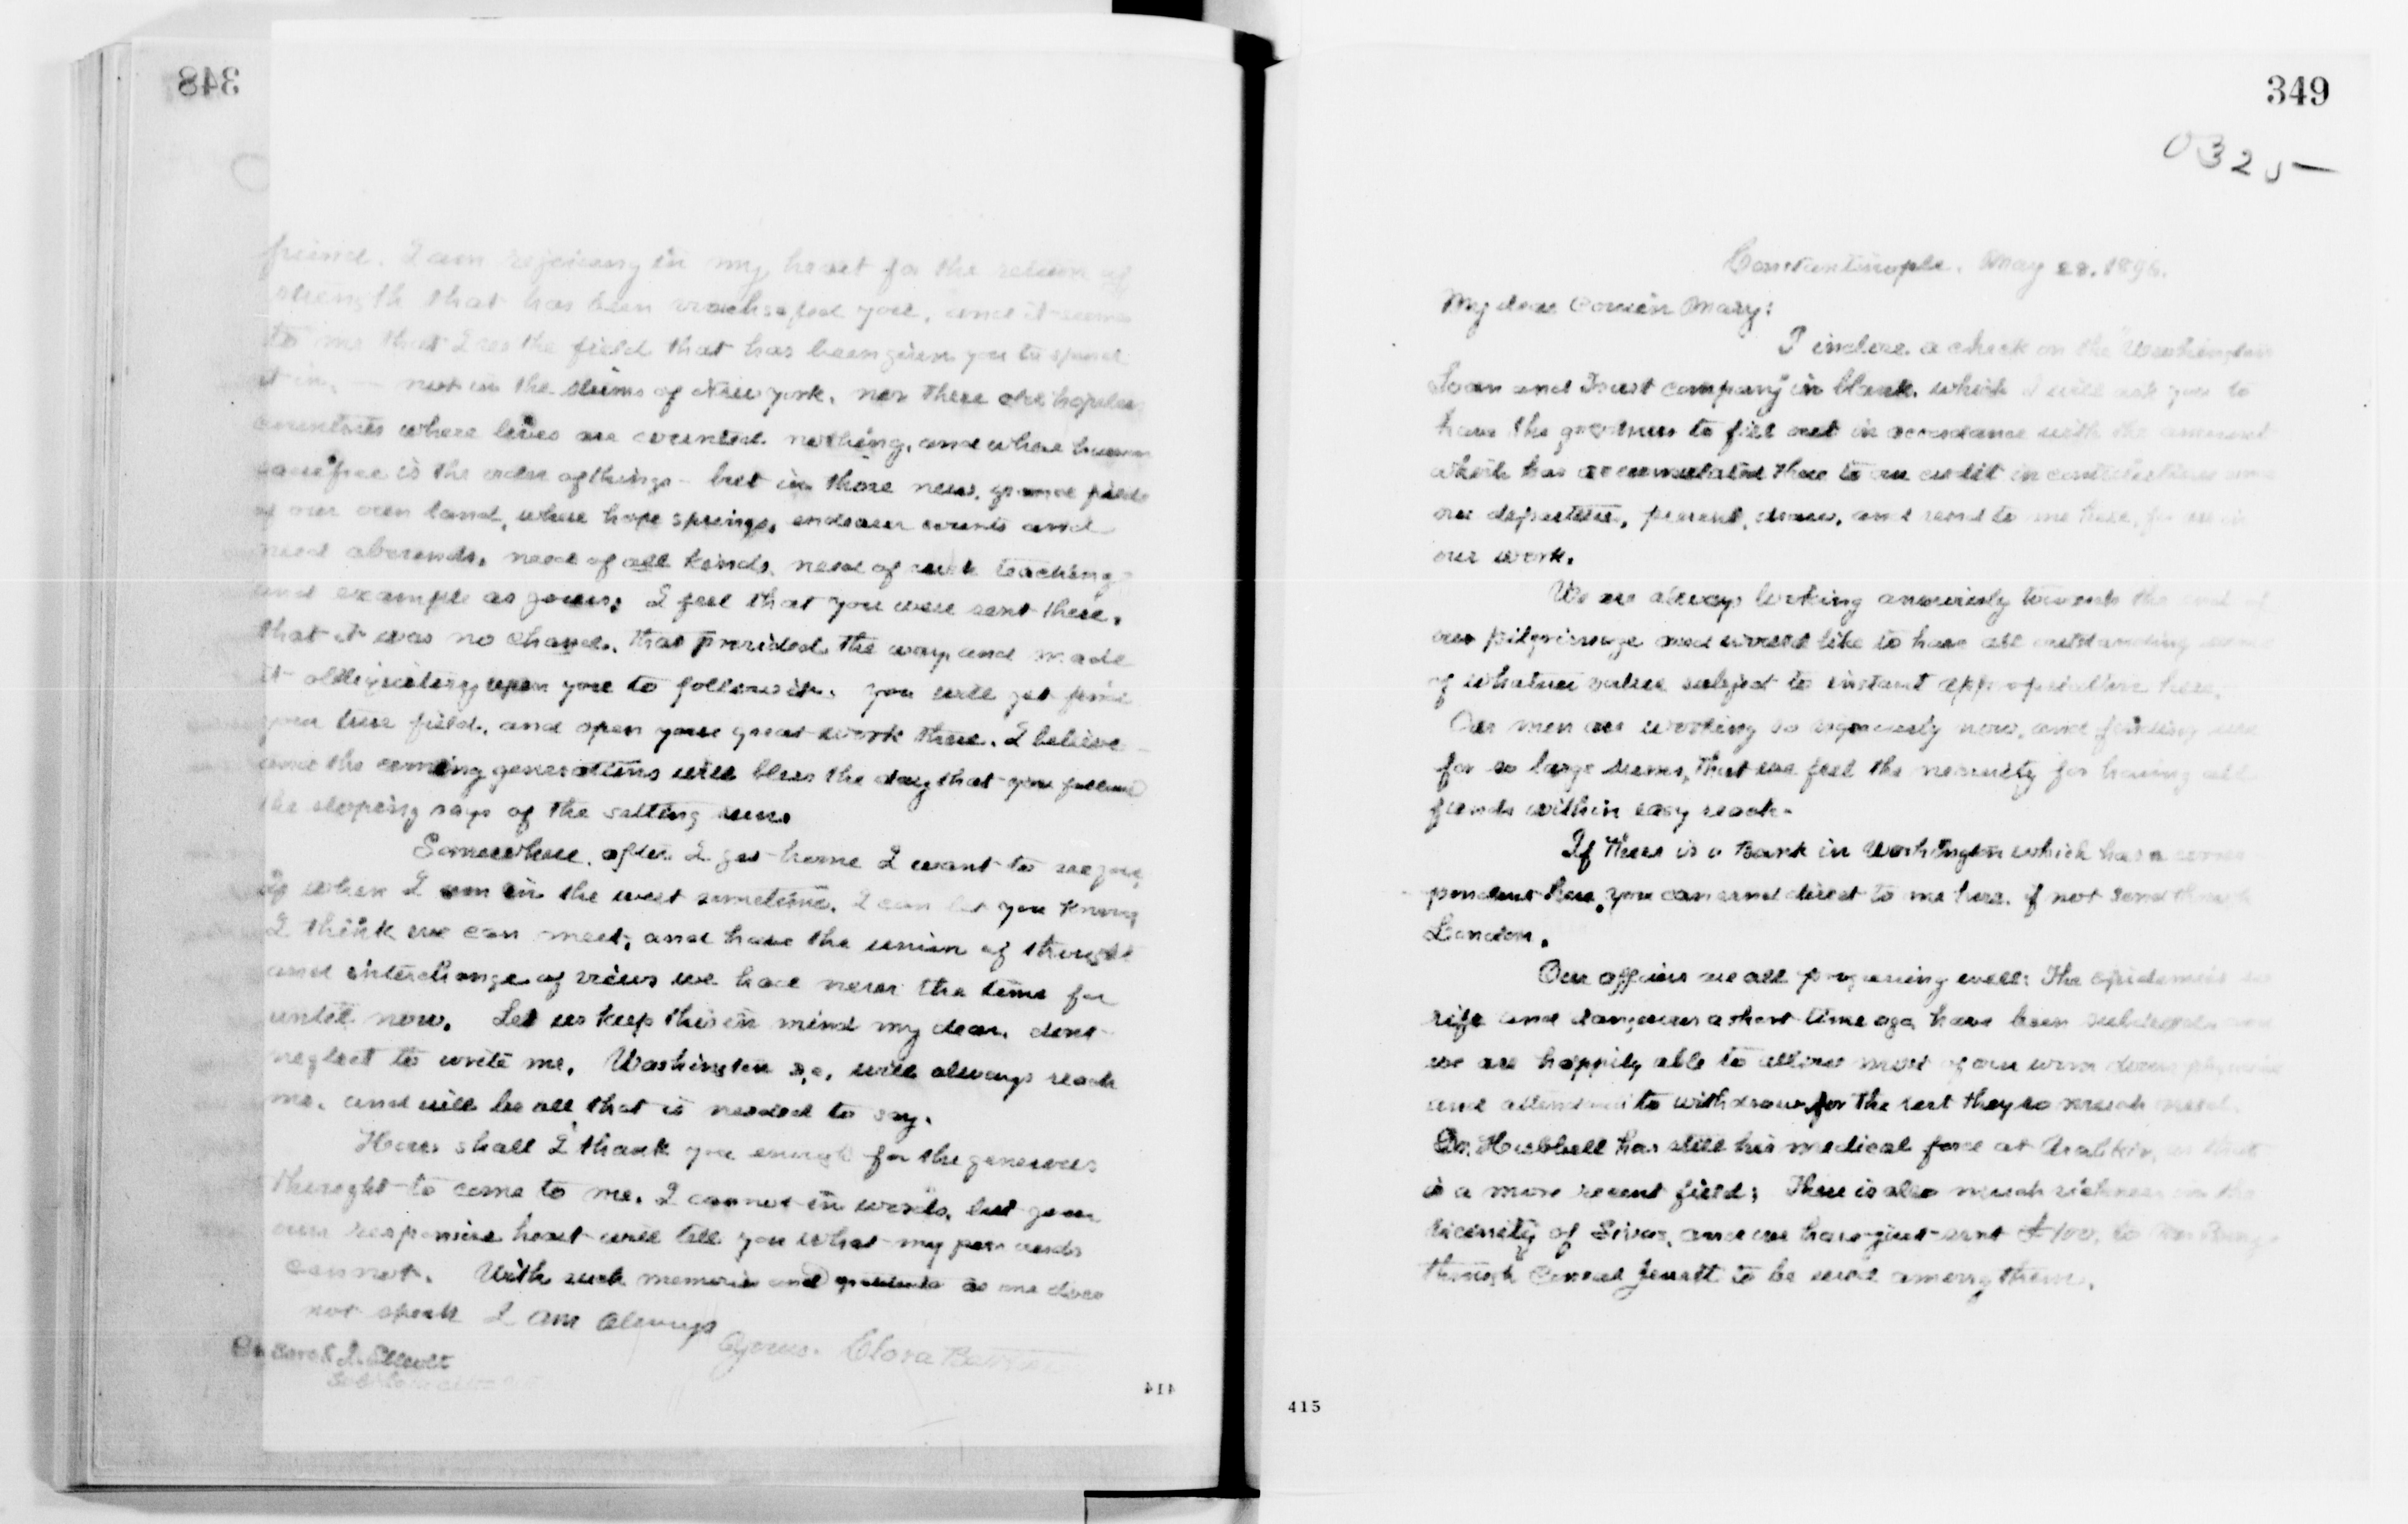 348
friend. I am rejoicing in my heart for the return of
strength that has been vouchsafed you, and it seems
to me that I see the field that has been given you to spend
it in, — not in the slums of New York, nor these old hopeless
countries where lives are counted nothing, and where human
sacrifice is the order of things - but in those new, grand fields
of our own land, where hope springs, endeavor counts and
need abounds, need of all kinds, need of such teaching
and example as yours; I feel that you were sent there,
that it was no chance, that provided the way, and made
it obligatory upon you to follow it. You will yet find
your true field, and open your great work there. I believe
and the coming generations will bless the day that you followed
the sloping rays of the setting sun.
Somewhere, after I get home I want to see you,
if when I am in the west sometime, I can let you know,
I think we can meet, and have the union of thought
and interchange of views we have never the time for
until now. Let us keep this in mind my dear, dont
neglect to write me, Washington D.C. will always reach
me, and will be all that is needed to say.
How shall I thank you enough for the generous
thought to come to me. I cannot in words, but your
own responsive heart will tell you what my poor words
cannot. With such memories and gratitude as one does
not speak I am always
Yours. Clara Barton
Sarah J. Elliott
414
349
0325
Constantinople. May 28. 1896.
My dear Cousin Mary:
I inclose a check on the "Washington
Loan and Trust company" in blank, which I will ask you to
have the goodness to fill out in accordance with the amount
which has accumulated there to our credit in contributions since
our departure, present, draw, and send to me here, for use in
our work.
We are always looking anxiously towards the end of
our pilgrimage and would like to have all outstanding
of whatever value subject to instant appropriation here.
Our men are working so vigorously now, and
for so large sums, that we feel the necessity for having all
funds within easy reach.
If there is a Bank in Washington which has a corres-
pondent here, you can send direct to me here, if not send through
London.
Our affairs are all progressing well: The epidemics so
rife and dangerous a short time ago, have been subdued and
we are happily able to allow most of our worn down physicians
and attendants to withdraw for the rest they so much need.
Dr. Hubbell has still his medical force at Arabkir, as that
is a more recent field; There is also much sickness in the
vicinity of Sivas, and we have just sent £100, to
through Consul Jewett to be used among them.
415